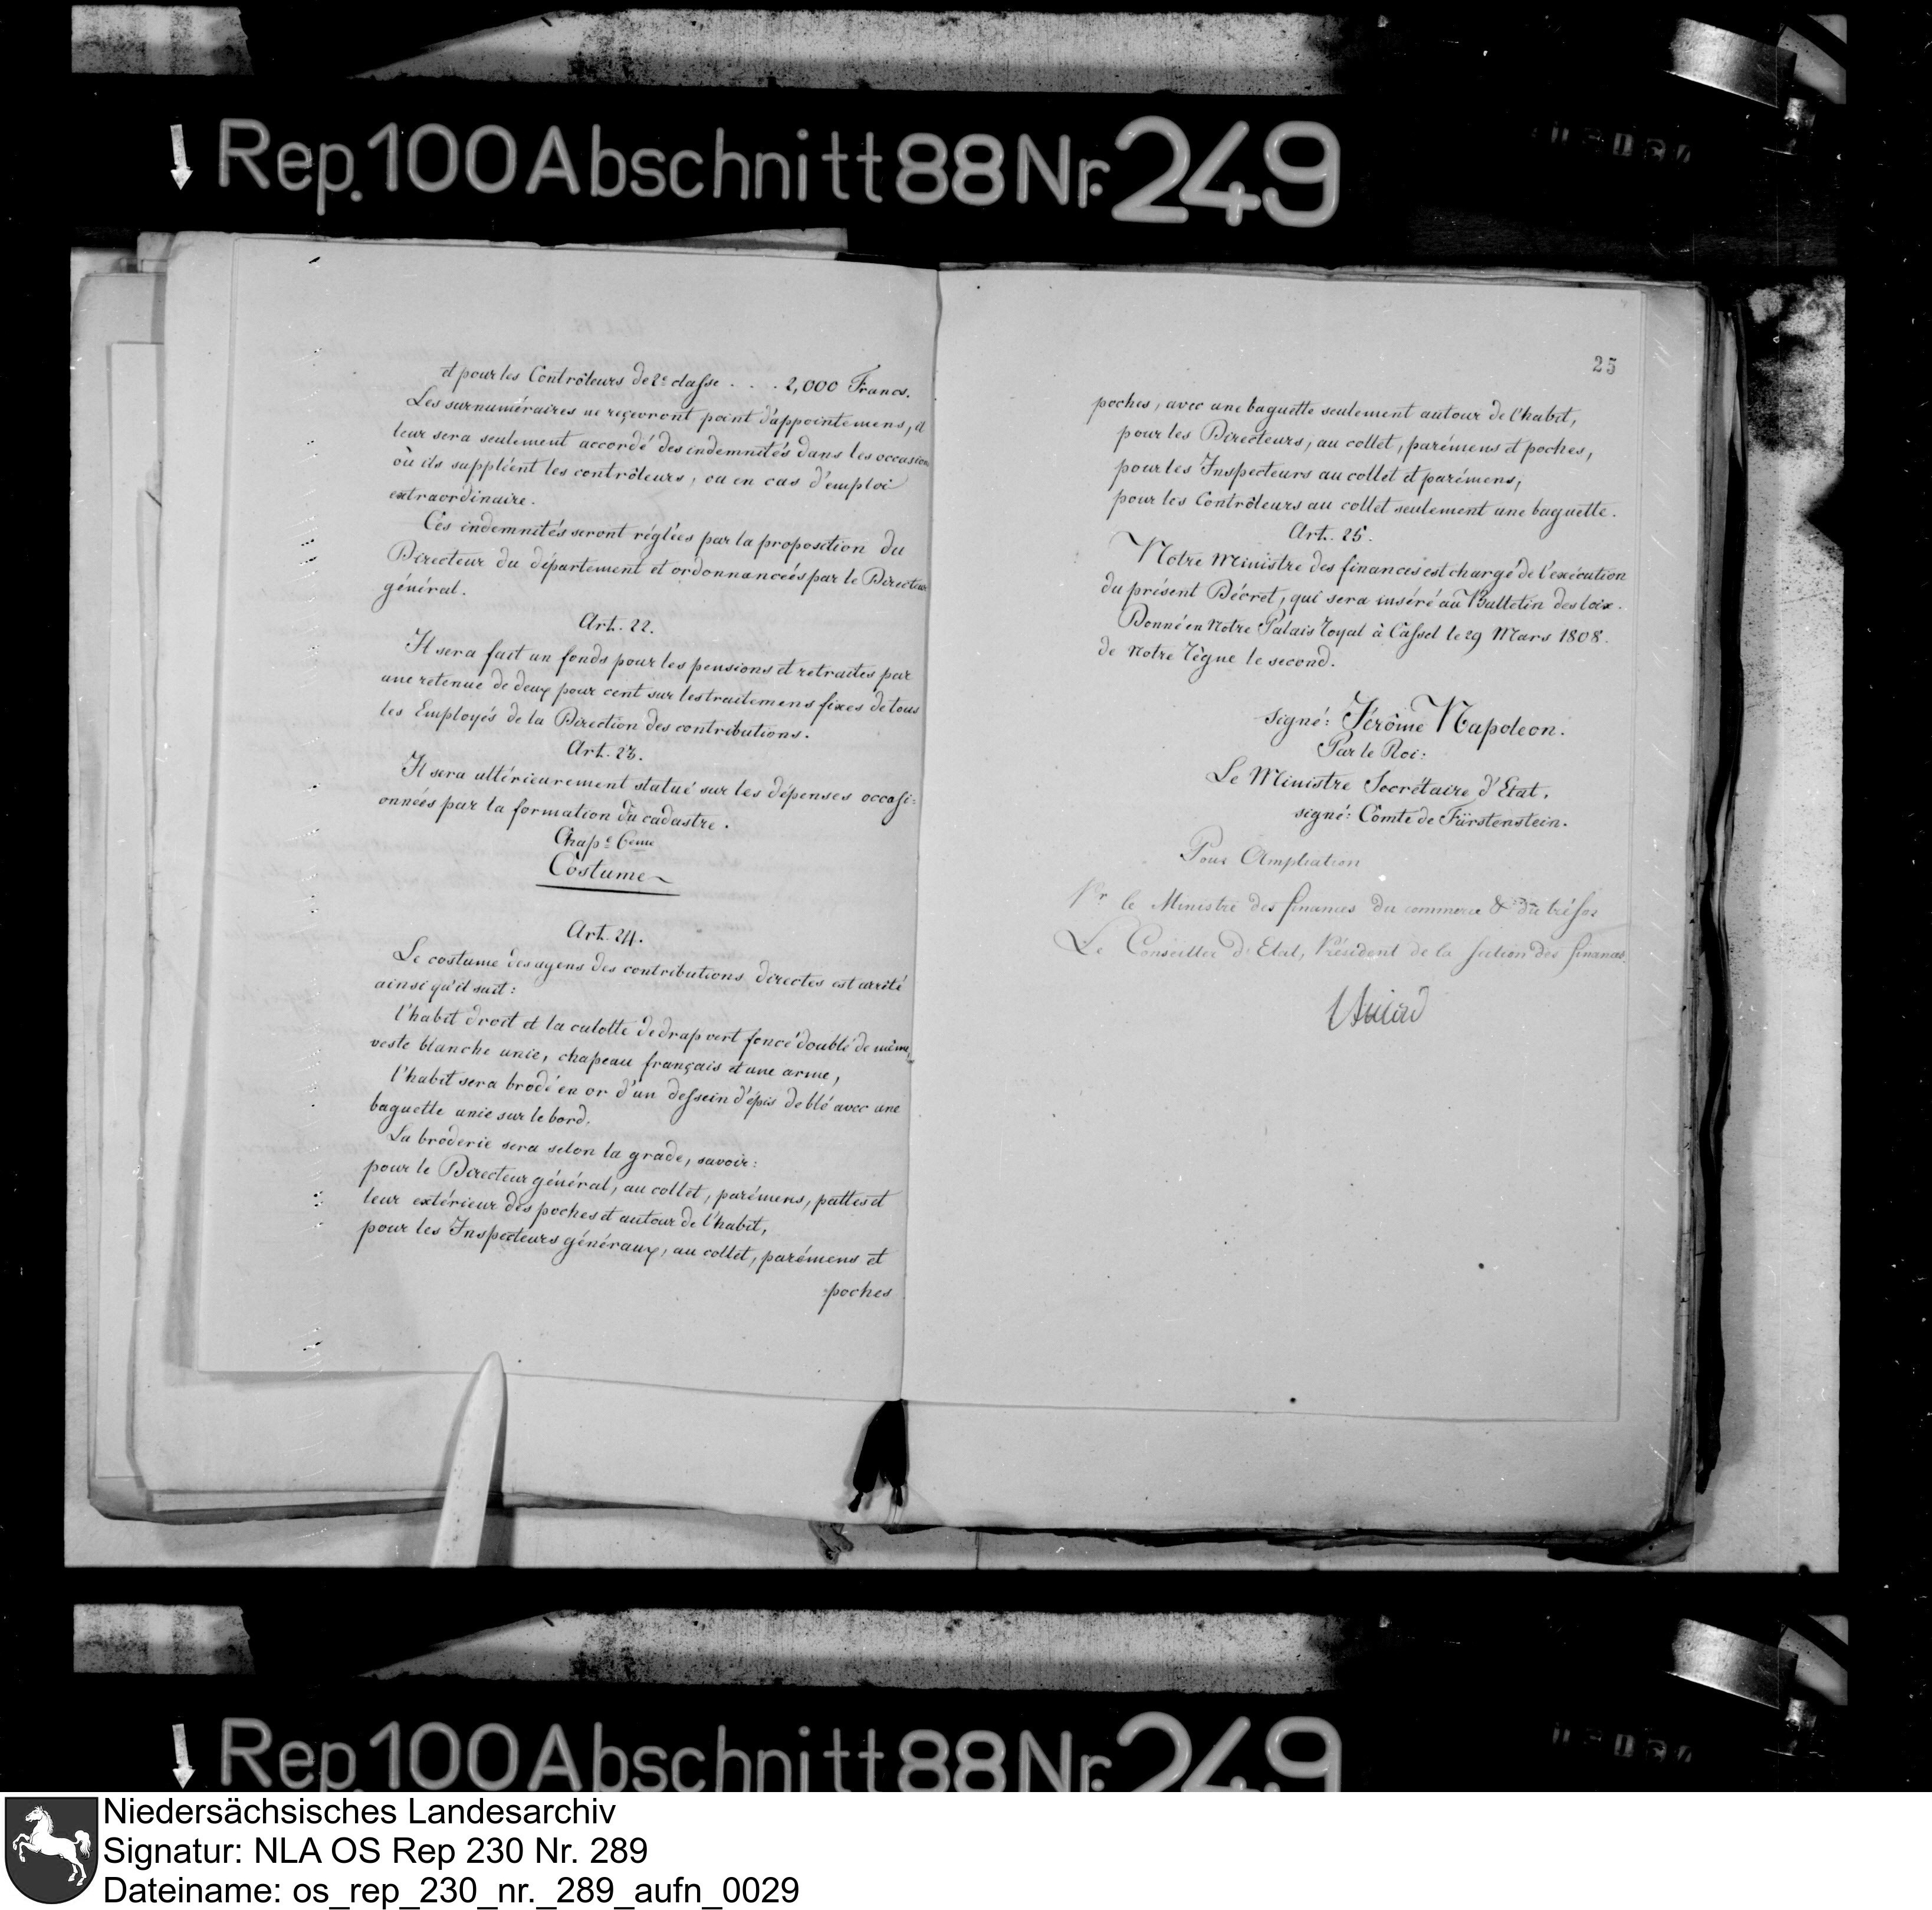 Rep. 100 Abschnitt 88 Nr. 249
et pour les Contrôleurs de 2e classe . . . 2,000 Francs.
Les surnuméraires ne reçevront point d'appointemens, il
leur sera seulement accordé des indemnités dans les occasions
où ils suppléent les contrôleurs, ou en cas d'emploi
extraordinaire.
Ces indemnités seront réglées par la proposition du
Directeur du département et ordonnancées par le Directeur
général.
Art. 22.
Il sera fait un fonds pour les pensions et retraites par
une retenue de deux pour cent sur les traitemens fixes de tous
les Employés de la Direction des contributions.
Art. 23.
Il sera ultérieurement statué sur les dépenses occasi=
onnées par la formation du cadastre.
Chap.e 6ème
Costume
Art. 24.
Le costume des agens des contributions directes est arrêté
ainsi qu'il suit:
l'habit droit et la culotte de drap vert foncé doublé de même,
veste blanche unie, chapeau français et une arme,
l'habit sera brodé en or d'un dessein d'épis de blé avec une
baguette unie sur le bord.
La broderie sera selon la grade, savoir:
pour le Directeur général, au collet, parémens, pattes et
leur extérieur des poches et autour de l'habit,
pour les Inspecteurs généraux, au collet, parémens et
poches
25
poches, avec une baguette seulement autour de l'habit,
pour les Directeurs, au collet, parémens et poches,
pour les Inspecteurs au collet et parémens,
pour les Contrôleurs au collet seulement une baguette.
Art. 25.
Notre Ministre des finances est chargé de l'exécution
du présent Décret, qui sera inséré au Bulletin des loix.
Donné en Notre Palais royal à Cassel le 29 Mars 1808.
de Notre règne le second.
signé: Jérôme Napoleon.
Par le Roi:
Le Ministre Secrétaire d'Etat,
signé: Comte de Fürstenstein.
Pour Ampliation
Pr le Ministre des finances du commerce & du trésor
Le Conseiller d'Etat, Président de la section des finances
Rep. 100 Abschnitt 88 Nr. 249
Niedersächsisches Landesarchiv
Signatur: NLA OS Rep 230 Nr. 289
Dateiname: os_rep_230_nr._289_aufn_0029